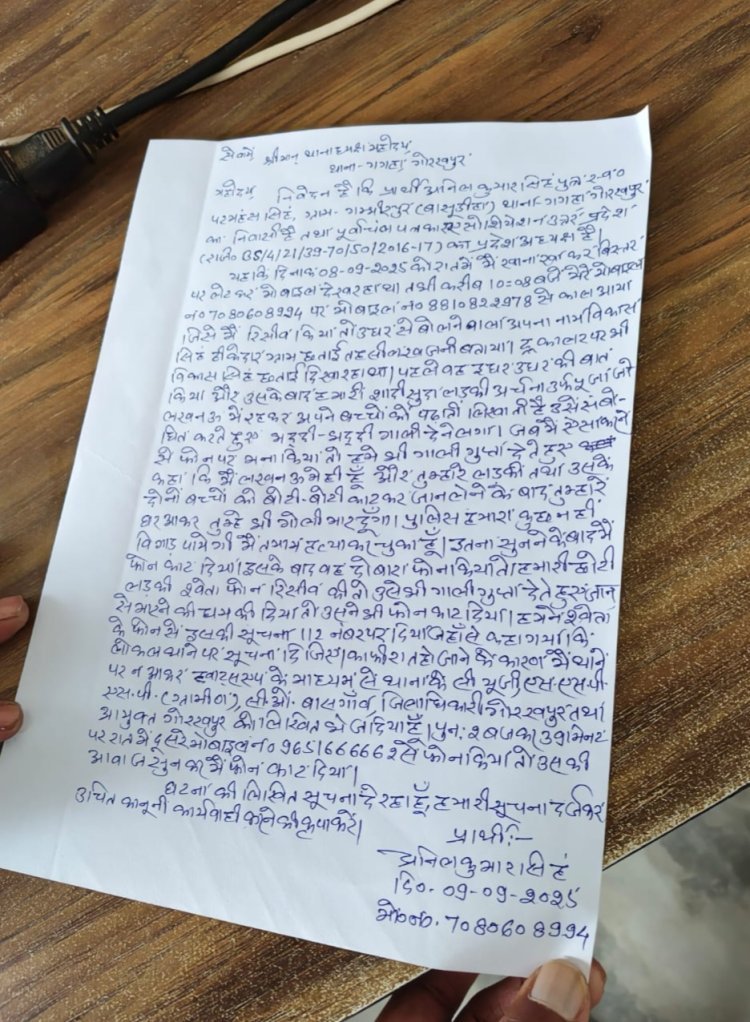 सेवा में श्रीमान् थानाध्यक्ष महोदय
थाना-गगहा गोरखपुर
महोदय, निवेदन है कि प्रार्थी अनिल कुमार सिंह पुत्र स्व०
परमहंस सिंह, ग्राम- गम्भीरपुर (बासूडीहा) थाना-गगहा गोरखपुर
का निवासी है तथा पूर्वांचल पत्रकार एसोशियेशन उत्तर प्रदेश
(राजि० BS/4/21/39-70/50/2016-17) का प्रदेश अध्यक्ष है।
यह कि दिनांक 08-09-2025 को रात में मैं खाना खाकर बिस्तर
पर लेटकर मोबाइल देख रहा था तभी करीब 10=08 बजे मेरे मोबाइल
नं० 7080608994 पर मोबाइल नं० 8810822978 से काल आया
जिसे मैं रिसीव किया तो उधर से बोलने वाला अपना नाम विकास
सिंह ठीकेदार ग्राम छताई तहसील खजनी बताया। ट्रू कालर पर भी
विकास सिंह छताई दिख रहा था। पहले वह इधर उधर की बात
किया और उसके बाद हमारी शादी सुदा लड़की अर्चना उर्फ पूजा जो
लखनऊ में रहकर अपने बच्चों को पढाती लिखाती है उसे संबो-
धित करते हुए भद्दी-भद्दी गाली देने लगा। जब मैं ऐसा करने
से फोन पर मना किया तो हमें भी गाली गुप्ता देते हुए
कहा कि मैं लखनऊ में ही हूँ और तुम्हारे लड़की तथा उसके
दोनों बच्चों को बोटी-बोटी काटकर जान लेने के बाद तुम्हारे
घर आकर तुम्हे भी गोली मार दूँगा। पुलिस हमारा कुछ नहीं
बिगाड़ पायेगी मैं तमाम हत्या कर चुका हूँ। इतना सुनने के बाद मैं
फोन काट दिया। इसके बाद वह दोबारा फोन किया तो हमारी छोटी
लड़की श्वेता फोन रिसीव की तो उसे भी गाली गुप्ता देते हुए जान
से मारने की धमकी दिया तो उसने भी फोन काट दिया। हमने श्वेता
के फोन से इसकी सूचना 112 नंबर पर दिया जहाँ से कहा गया कि
लोकल थाने पर सूचना दिजिए। काफी रात हो जाने के कारण मैं थाने
पर न आकर ह्वाटसएप के माध्यम से थाना के सी यू जी, एस-एस-पी-
एस.पी. (ग्रामीण), सीओ. बासगाँव, जिलाधिकारी गोरखपुर तथा
आयुक्त गोरखपुर को लिखित भेज दिया हूँ। पुनः 2 बजकर 39 मिनट
पर रात में दूसरे मोबाइल नं० 9651666662 से फोन किया तो उसकी
आवाज सुनकर मैं फोन काट दिया।
घटना की लिखित सूचना दे रहा हूँ, हमारी सूचना दर्ज कर
उचित कानूनी कार्यवाही करने की कृपा करें।
प्रार्थी:-
अनिल कुमार सिंह
दि०. 09-09-2025
मो०नं०. 7080608994